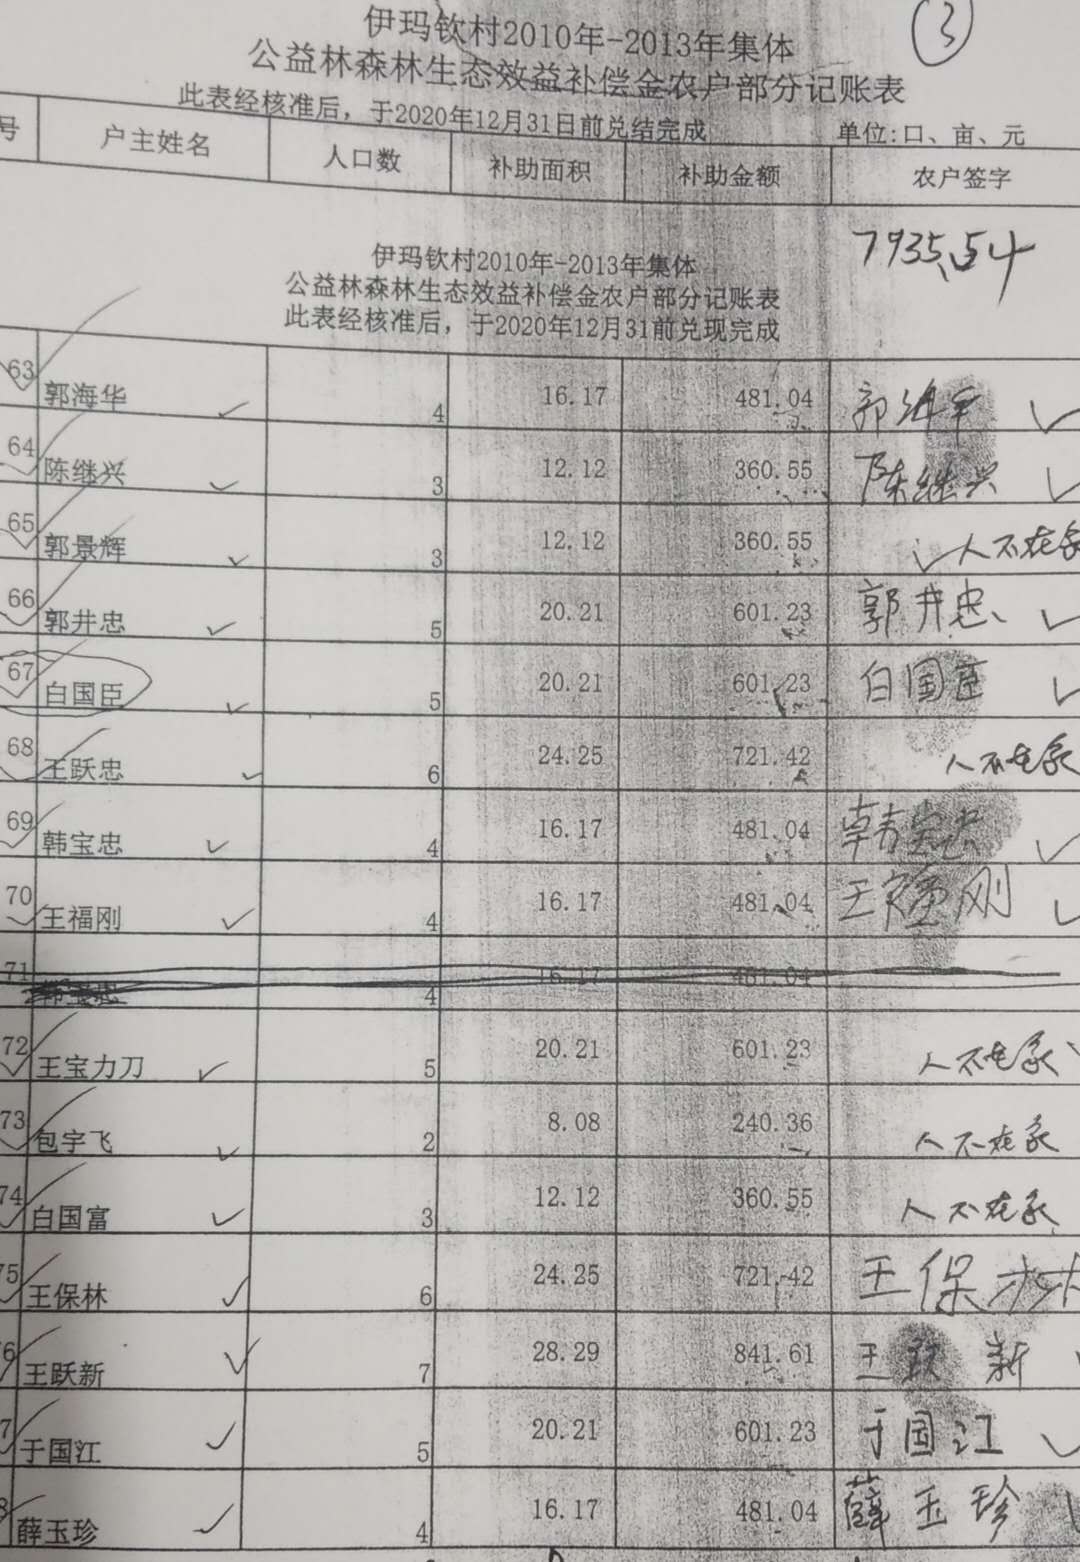 3
伊玛钦村2010年-2013年集体
公益林森林生态效益补偿金农户部分记账表
此表经核准后，于2020年12月31日前兑结完成 单位:口、亩、元
号 户主姓名 人口数 补助面积 补助金额 农户签字
7935.54
伊玛钦村2010年-2013年集体
公益林森林生态效益补偿金农户部分记账表
此表经核准后，于2020年12月31前兑现完成
63 郭海华 4 16.17 481.04 郭海华
64 陈继兴 3 12.12 360.55 陈继兴
65 郭景辉 3 12.12 360.55 人不在家
66 郭井忠 5 20.21 601.23 郭井忠
67 白国臣 5 20.21 601.23 白国臣
68 王跃忠 6 24.25 721.42 人不在家
69 韩宝忠 4 16.17 481.04 韩宝忠
70 王福刚 4 16.17 481.04 王福刚
71 4 16.17 481.04
72 王宝力刀 5 20.21 601.23 人不在家
73 包宇飞 2 8.08 240.36 人不在家
74 白国富 3 12.12 360.55 人不在家
75 王保林 6 24.25 721.42 王保林
6 王跃新 7 28.29 841.61 王跃新
7 于国江 5 20.21 601.23 于国江
8 薛玉珍 4 16.17 481.04 薛玉珍